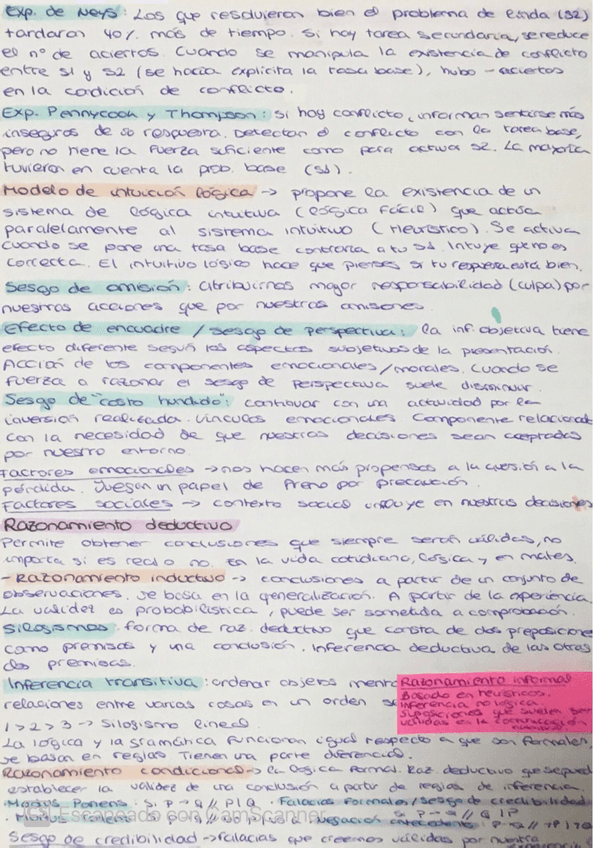 Exp. de Neys: Los que resolvieron bien el problema de Linda (S2)
tardaron 40% más de tiempo. Si hay tarea secundaria, se reduce
el nº de aciertos. Cuando se manipula la existencia de conflicto
entre S1 y S2 (se hacía explícita la tasa base), hubo - aciertos
en la condición de conflicto.
Exp. Pennycook y Thompson: si hay conflicto, informan sentirse más
inseguros de su respuesta. Detectan el conflicto con la tarea base,
pero no tiene la fuerza suficiente como para activar S2. La mayoría
tuvieron en cuenta la prob. base (S1).
Modelo de intuición lógica → propone la existencia de un
sistema de lógica intuitiva (lógica fácil) que actúa
paralelamente al sistema intuitivo (heurístico). Se activa
cuando se pone una tasa base contraria a tu S1. Intuye que no es
correcta. El intuitivo lógico hace que pienses si tu respuesta está bien.
Sesgo de omisión: atribuirnos mayor responsabilidad (culpa) por
nuestras acciones que por nuestras omisiones.
Efecto de encuadre / sesgo de perspectiva: la inf. objetiva tiene
efecto diferente según los aspectos subjetivos de la presentación.
Acción de los componentes emocionales/morales. Cuando se
fuerza a razonar el sesgo de perspectiva suele disminuir.
Sesgo de "costo hundido": continuar con una actividad por la
inversión realizada. Vínculos emocionales. Componente relacional
con la necesidad de que nuestras decisiones sean aceptadas
por nuestro entorno.
Factores emocionales → nos hacen más propensos a la aversión a la
pérdida. Juegan un papel de freno por precaución.
Factores sociales → contexto social influye en nuestras decisiones
Razonamiento deductivo
Permite obtener conclusiones que siempre serán válidas, no
importa si es real o no. En la vida cotidiana, lógica y en mates.
- Razonamiento inductivo → conclusiones a partir de un conjunto de
observaciones. Se basa en la generalización. A partir de la experiencia.
La validez es probabilística, puede ser sometida a comprobación.
Silogismos: forma de raz. deductivo que consta de dos preposiciones
como premisas y una conclusión. Inferencia deductiva de las otras
dos premisas.
Inferencia transitiva: ordenar objetos
relaciones entre varias cosas en un orden
1 > 2 > 3 → Silogismo lineal
Razonamiento informal
Basado en heurísticos.
Inferencia no lógica.
Suposiciones que suelen ser
válidas en la comunicación
La lógica y la gramática funcionan igual respecto a que son formales,
se basan en reglas. Tienen una parte diferencial.
Razonamiento condicional → la lógica formal. Raz. deductivo que
establecer la validez de una conclusión a partir de reglas de inferencia.
- Modus Ponens: Si P → Q // P | Q. Falacias formales/sesgo de credibilidad
Escaneado con CamScanner
Sesgo de credibilidad → falacias que creemos válidas por nuestra